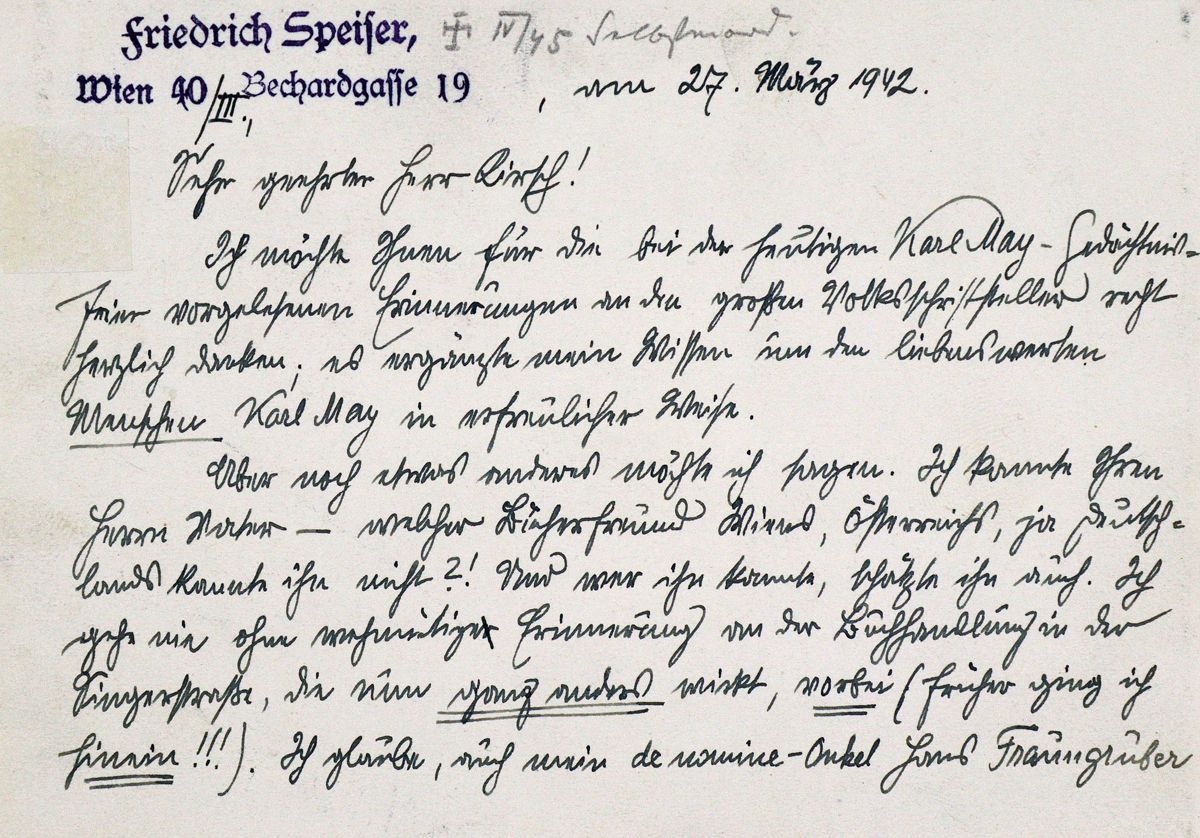 Friedrich Speiser, ☩ IV/45 Selbstmord.
Wien 40/III., Bechardgasse 19 , am 27. März 1942.
Sehr geehrter Herr Kirsch!
Ich möchte Ihnen für die bei der heutigen Karl May-Gedächtnis-
feier vorgelesenen Erinnerungen an den großen Volksschriftsteller recht
herzlich danken; es ergänzte mein Wissen um den liebenswerten
Menschen Karl May in erfreulicher Weise.
Aber noch etwas anderes möchte ich sagen. Ich kannte Ihren
Herrn Vater — welcher Bücherfreund Wiens, Österreichs, ja Deutsch-
lands kannte ihn nicht?! Und wer ihn kannte, schätzte ihn auch. Ich
gehe nie ohne wehmütige Erinnerung an der Buchhandlung in der
Singerstraße, die nun ganz anders wirkt, vorbei (früher ging ich
hinein!!!). Ich glaube, auch mein de nomine-Onkel Hans Fraungruber